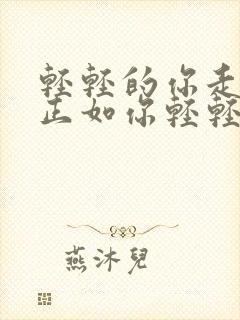 輕輕的你走
正如你輕輕
燕沐兒